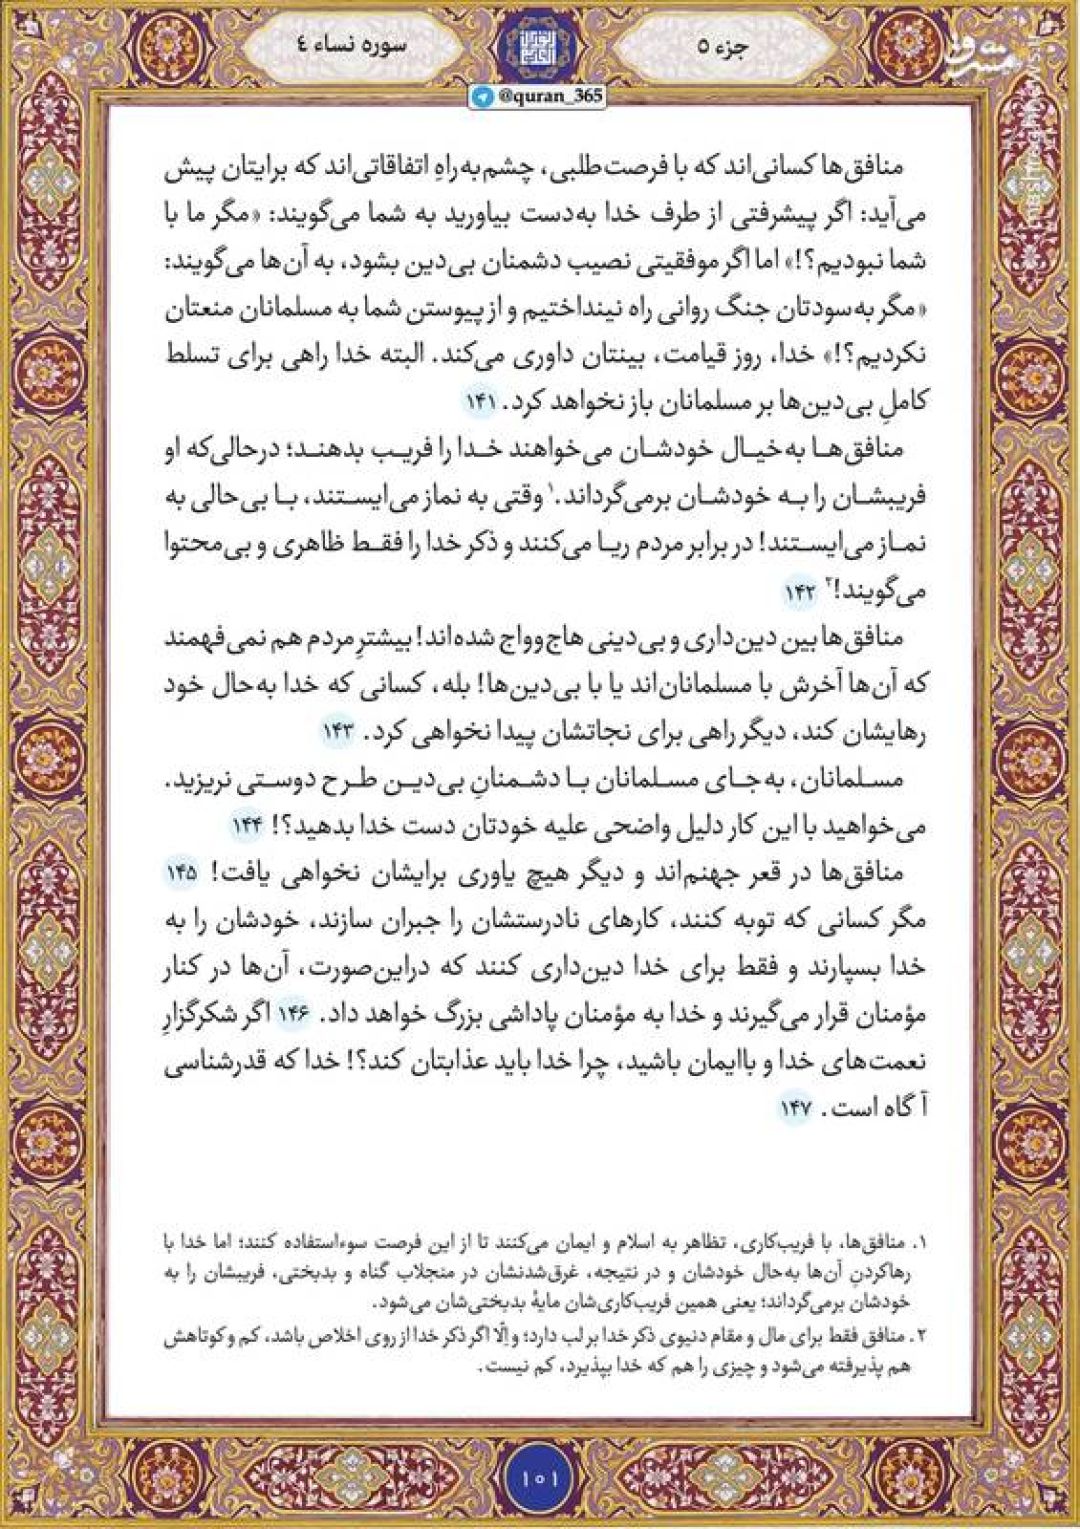 جزء ۵
سوره نساء ٤
@quran_365
مشرق
mashreghnews.ir
منافق‌ها کسانی‌اند که با فرصت‌طلبی، چشم‌به‌راهِ اتفاقاتی‌اند که برایتان پیش
می‌آید: اگر پیشرفتی از طرف خدا به‌دست بیاورید به شما می‌گویند: «مگر ما با
شما نبودیم؟!» اما اگر موفقیتی نصیب دشمنان بی‌دین بشود، به آن‌ها می‌گویند:
«مگر به‌سودتان جنگ روانی راه نینداختیم و از پیوستن شما به مسلمانان منعتان
نکردیم؟!» خدا، روز قیامت، بینتان داوری می‌کند. البته خدا راهی برای تسلط
کاملِ بی‌دین‌ها بر مسلمانان باز نخواهد کرد. ۱۴۱
منافق‌ها به‌خیال خودشان می‌خواهند خدا را فریب بدهند؛ درحالی‌که او
فریبشان را به خودشان برمی‌گرداند.۱ وقتی به نماز می‌ایستند، با بی‌حالی به
نماز می‌ایستند! در برابر مردم ریا می‌کنند و ذکر خدا را فقط ظاهری و بی‌محتوا
می‌گویند!۲ ۱۴۲
منافق‌ها بین دین‌داری و بی‌دینی هاج‌وواج شده‌اند! بیشترِ مردم هم نمی‌فهمند
که آن‌ها آخرش با مسلمانان‌اند یا با بی‌دین‌ها! بله، کسانی که خدا به‌حال خود
رهایشان کند، دیگر راهی برای نجاتشان پیدا نخواهی کرد. ۱۴۳
مسلمانان، به‌جای مسلمانان با دشمنانِ بی‌دین طرح دوستی نریزید.
می‌خواهید با این کار دلیل واضحی علیه خودتان دست خدا بدهید؟! ۱۴۴
منافق‌ها در قعر جهنم‌اند و دیگر هیچ یاوری برایشان نخواهی یافت! ۱۴۵
مگر کسانی که توبه کنند، کارهای نادرستشان را جبران سازند، خودشان را به
خدا بسپارند و فقط برای خدا دین‌داری کنند که دراین‌صورت، آن‌ها در کنار
مؤمنان قرار می‌گیرند و خدا به مؤمنان پاداشی بزرگ خواهد داد. ۱۴۶ اگر شکرگزارِ
نعمت‌های خدا و باایمان باشید، چرا خدا باید عذابتان کند؟! خدا که قدرشناسی
آگاه است. ۱۴۷
۱. منافق‌ها، با فریب‌کاری، تظاهر به اسلام و ایمان می‌کنند تا از این فرصت سوءاستفاده کنند؛ اما خدا با
رهاکردنِ آن‌ها به‌حال خودشان و در نتیجه، غرق‌شدنشان در منجلاب گناه و بدبختی، فریبشان را به
خودشان برمی‌گرداند؛ یعنی همین فریب‌کاری‌شان مایهٔ بدبختی‌شان می‌شود.
۲. منافق فقط برای مال و مقام دنیوی ذکر خدا بر لب دارد؛ و اِلّا اگر ذکر خدا از روی اخلاص باشد، کم و کوتاهش
هم پذیرفته می‌شود و چیزی را هم که خدا بپذیرد، کم نیست.
۱۰۱